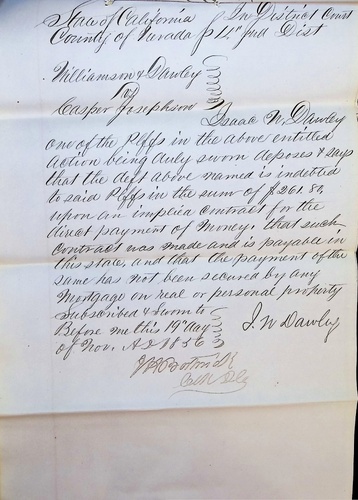 State of California } In District Court
County of Nevada } 11th Judl Dist
Williamson & Dawley
vs
Casper Josephson
Isaac W. Dawley
one of the Plffs in the above entitled
action being duly sworn deposes & says
that the deft above named is indebted
to said Plffs in the sum of $261.80,
upon an implied contract for the
direct payment of Money. that such
contract was made and is payable in
this state, and that the payment of the
same has not been secured by any
Mortgage on real or personal property
Subscribed & sworn to
Before me this 19th day
of Nov. AD 1856
I. W Dawley